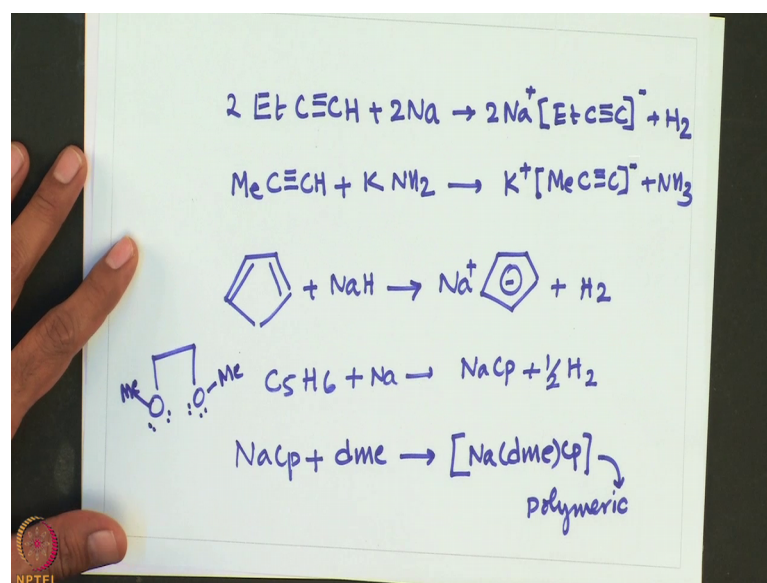 2 EtC≡CH + 2Na → 2Na⁺[EtC≡C]⁻ + H2
MeC≡CH + KNH2 → K⁺[MeC≡C]⁻ + NH3
+ NaH → Na⁺ - + H2
Me O : : : : O Me C5H6 + Na → NaCp + ½ H2
NaCp + dme → [Na(dme)Cp]
polymeric
NPTEL